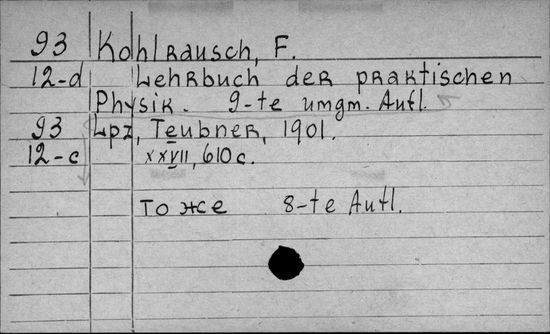 93 Kohlrausch, F.
12-d Lehrbuch der praktischen
Physik. 9-te umgm. Autl.
93 Lpz, Teubner, 1901.
12-c XXVII, 610 c.
То же 8-te Autl.